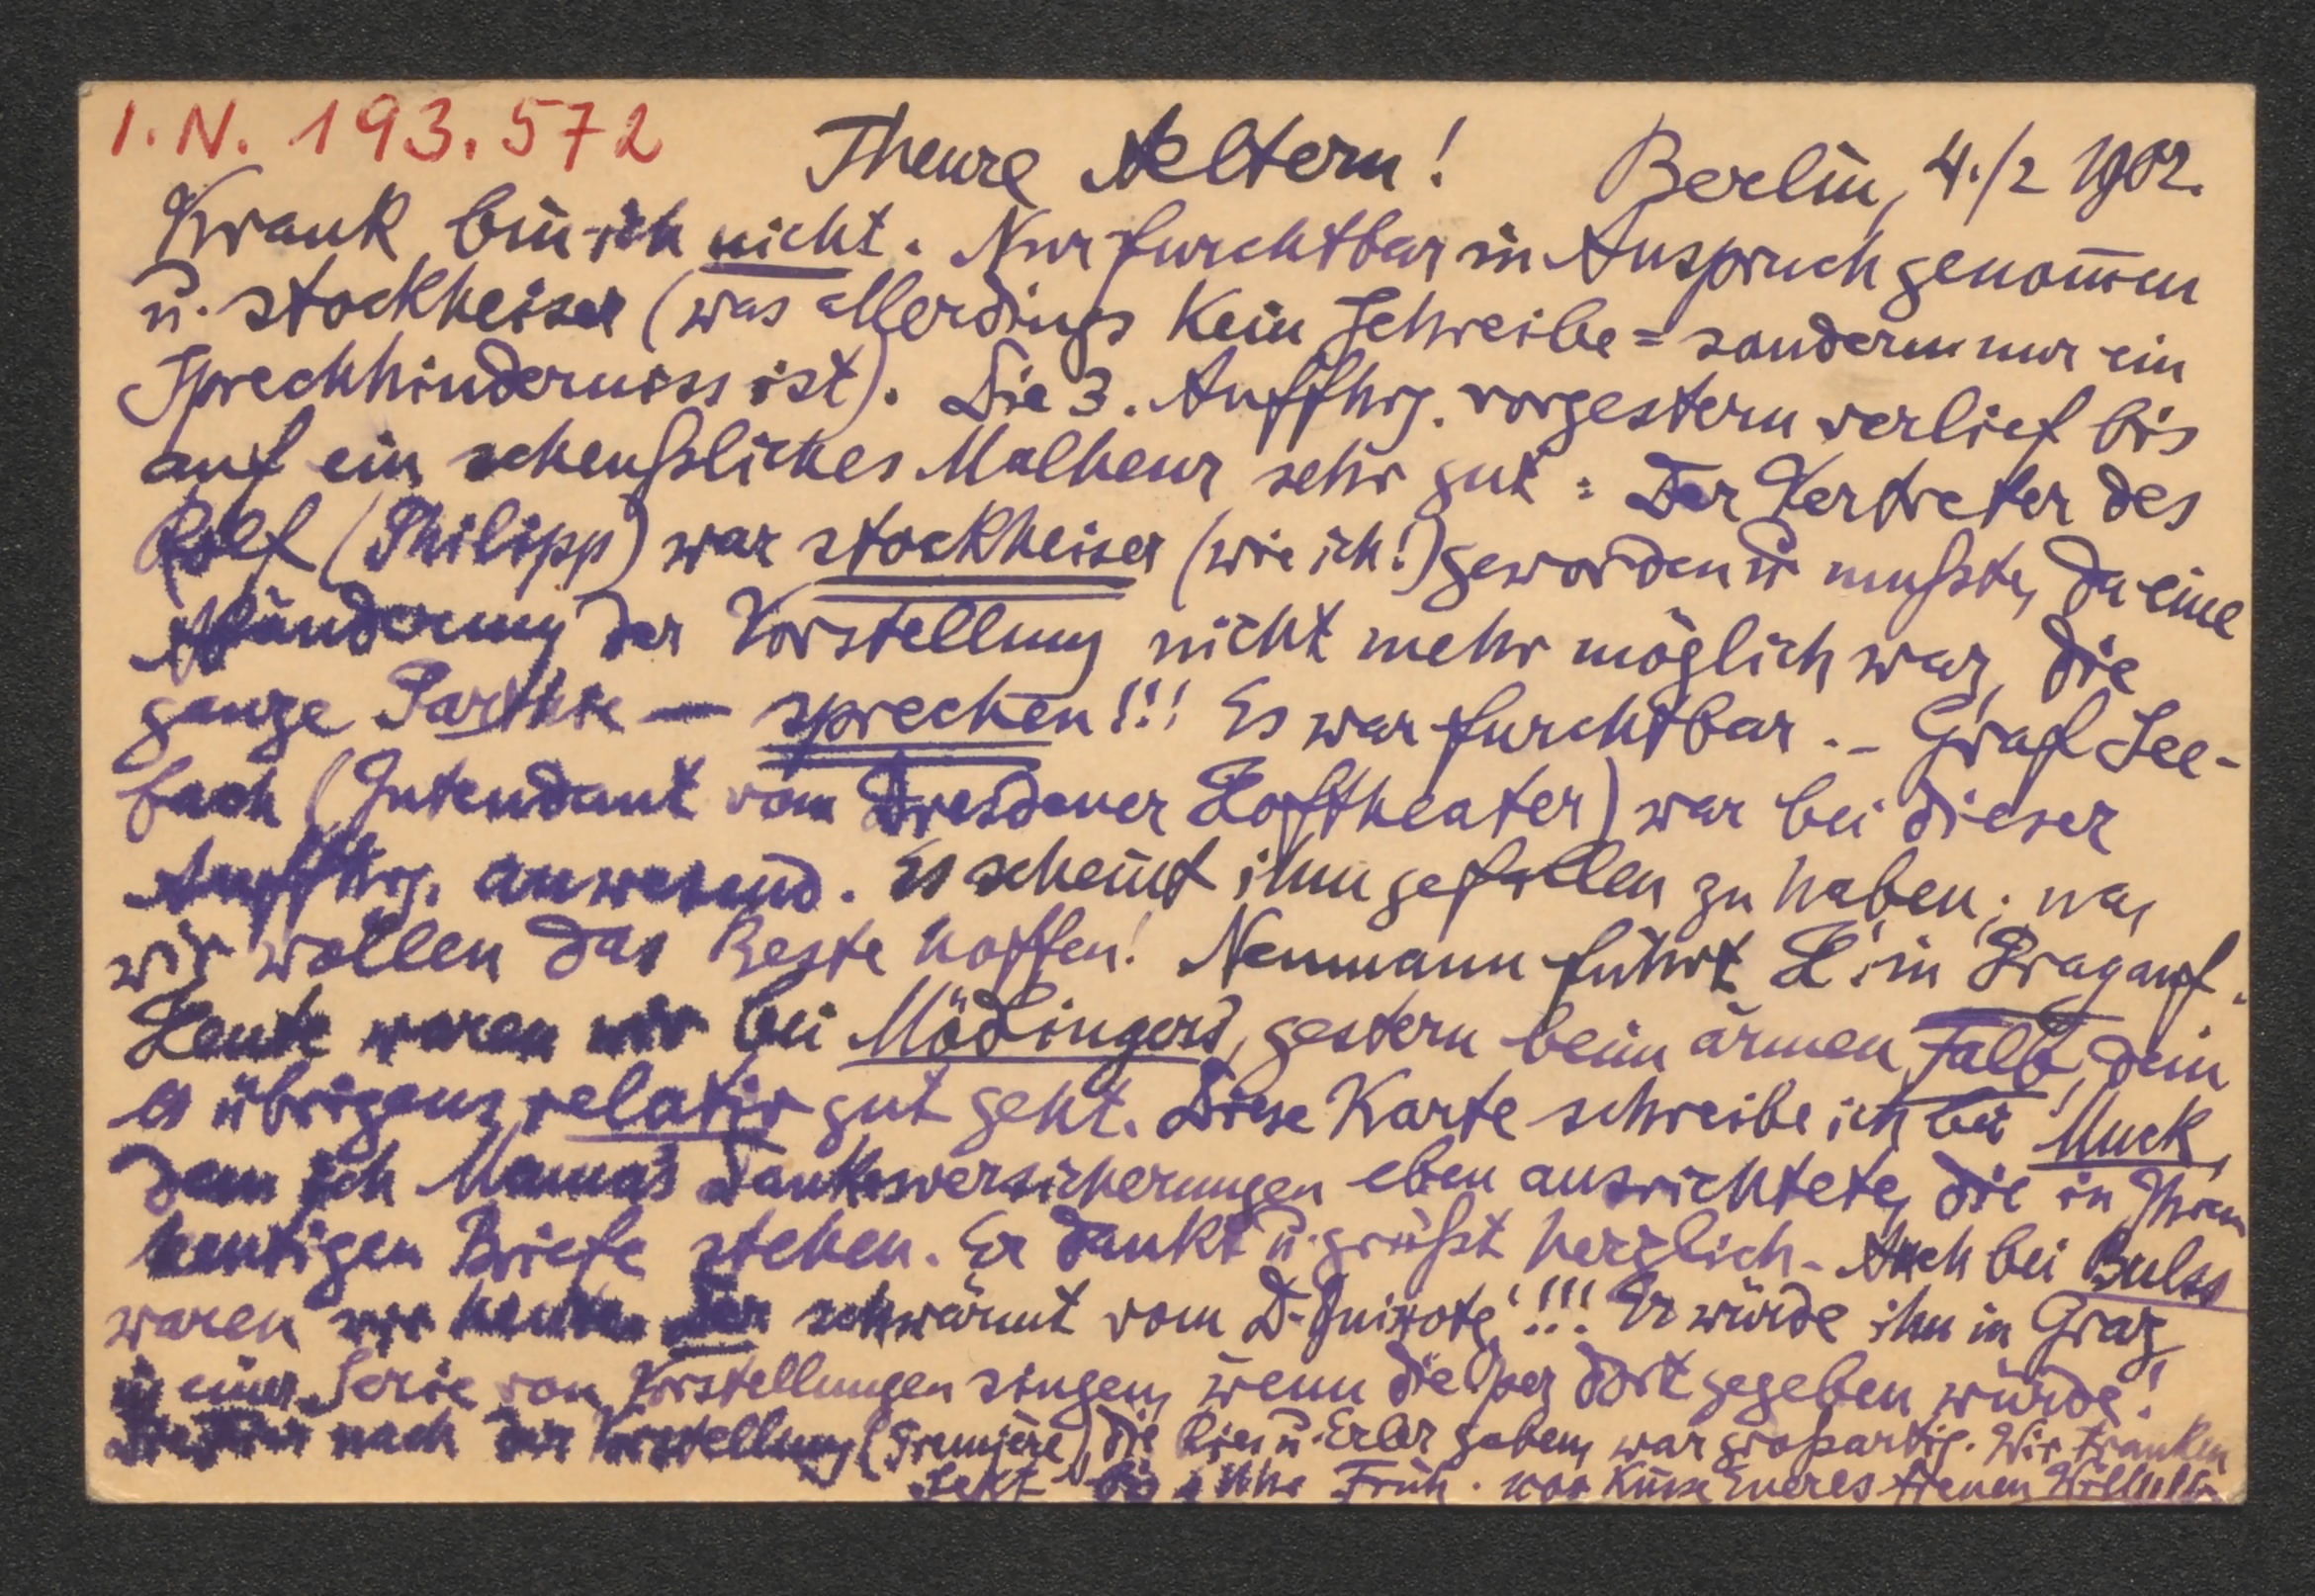 I. N. 193.572
Theure Aeltern! Berlin, 4./2 1902.
Krank bin ich nicht. Nur furchtbar in Anspruch genom̄en
u. stockheiser (was allerdings kein Schreibe= sondern nur ein
Sprechhinderniss ist). Die 3. Auffhrg. vorgestern verlief bis
auf ein scheußliches Malheur sehr gut: Der Vertreter des
Rolf (Philipp) war stockheiser (wie ich!) geworden u mußte, da eine
Abänderung der Vorstellung nicht mehr möglich war, die
ganze Parthie — sprechen!!! Es war furchtbar. – Graf See-
bach (Intendant vom Dresdener Hoftheater) war bei dieser
Auffhrg. anwesend. Es scheint ihm gefallen zu haben; na,
wir wollen das Beste hoffen! Neumann führt H. in Prag auf.
Heute waren wir bei Mödlingers, gestern beim armen Falb, dem
es übrigens relativ gut geht. Diese Karte schreibe ich bei Muck,
dem ich Mamas Dankesversicherungen eben ausrichtete, die in Ihrem
heutigen Briefe stehen. Er dankt u. grüßt herzlich. Auch bei Bulss
waren wir heute. Der schwärmt vom D. Quixote!!! Er würde ihn in Graz
in einer Serie von Vorstellungen singen, wenn die Oper dort gegeben würde!
nach der Vorstellung (Première), die Ries u. Erler gaben, war großartig. Wir tranken
Sekt bis Uhr Früh. Eueres treuen Wilhelm